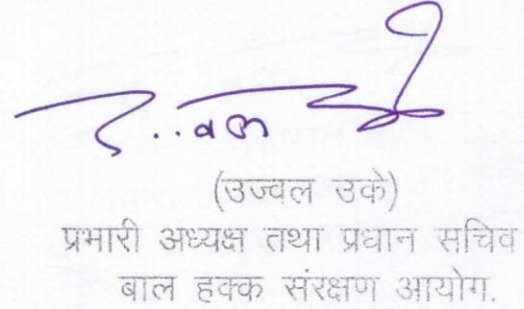 (उज्वल उके)
प्रभारी अध्यक्ष तथा प्रधान सचिव
बाल हक्क संरक्षण आयोग.